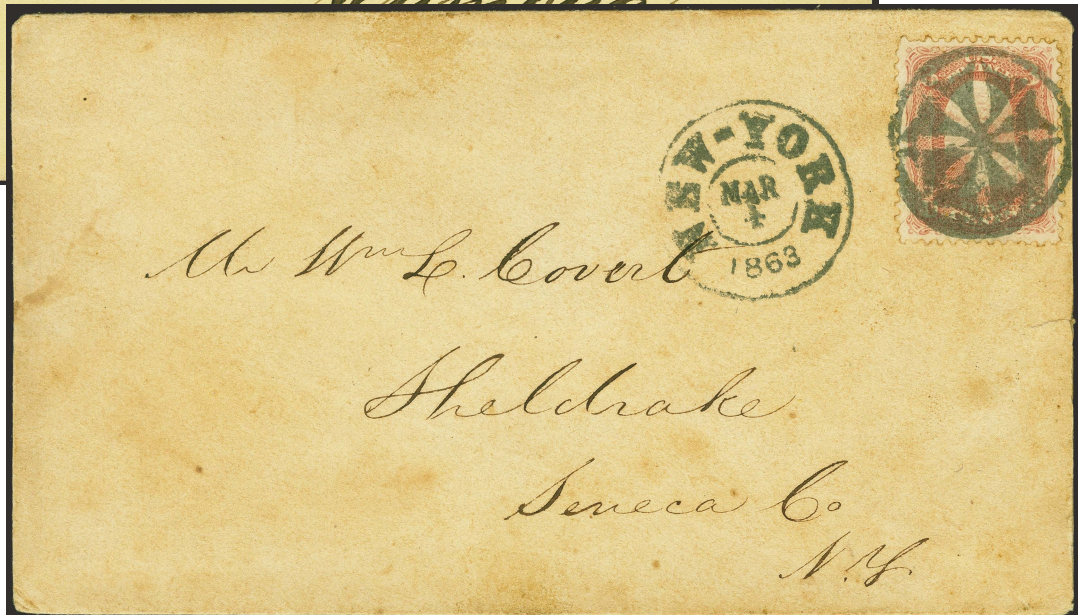 NEW-YORK
MAR
4
1863
Mr Wm L. Covert
Sheldrake
Seneca Co
N.Y.